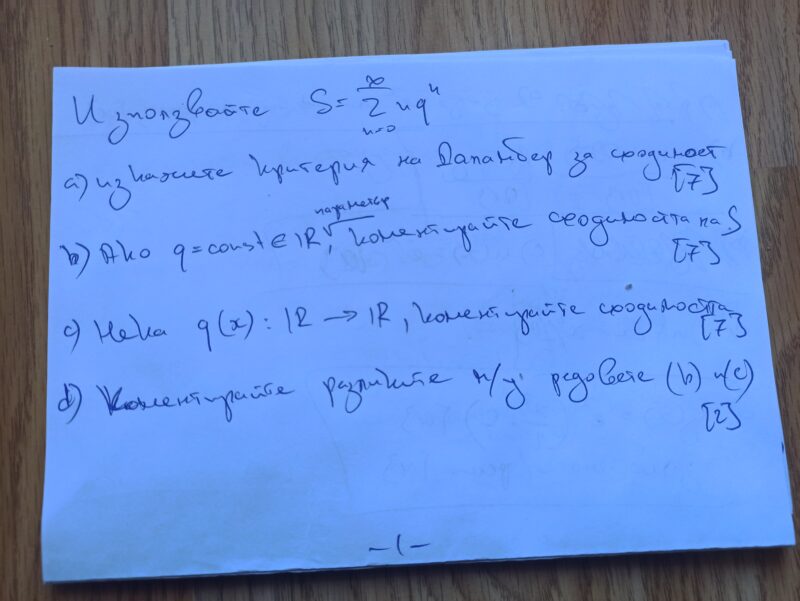 Използвайте S = ∞ Σ n=0 nq^n
a) изкажете критерия на Даламбер за сходимост
[7]
параметър
b) Ако q = const ∈ ℝ, коментирайте сходимостта на S
[7]
c) Нека q(x) : ℝ → ℝ, коментирайте сходимостта
[7]
d) Коментирайте разликите м/у редовете (b) и (c)
[2]
-1-